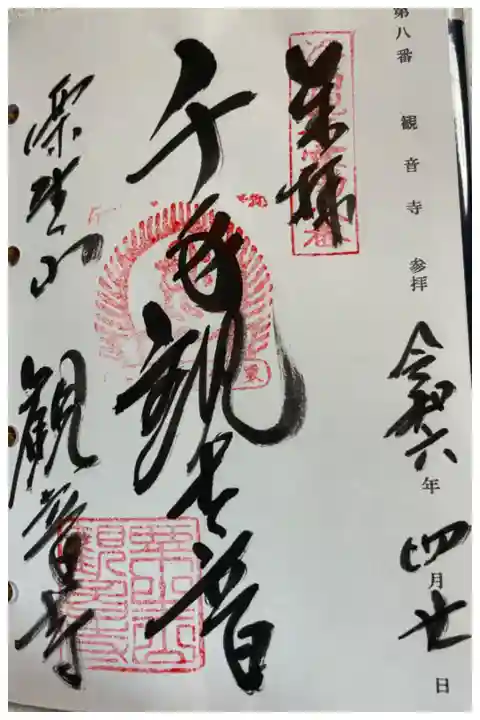 第八番 観音寺 参拝
令和六年四月廿日
奉拝
千手観世音
山 観音寺